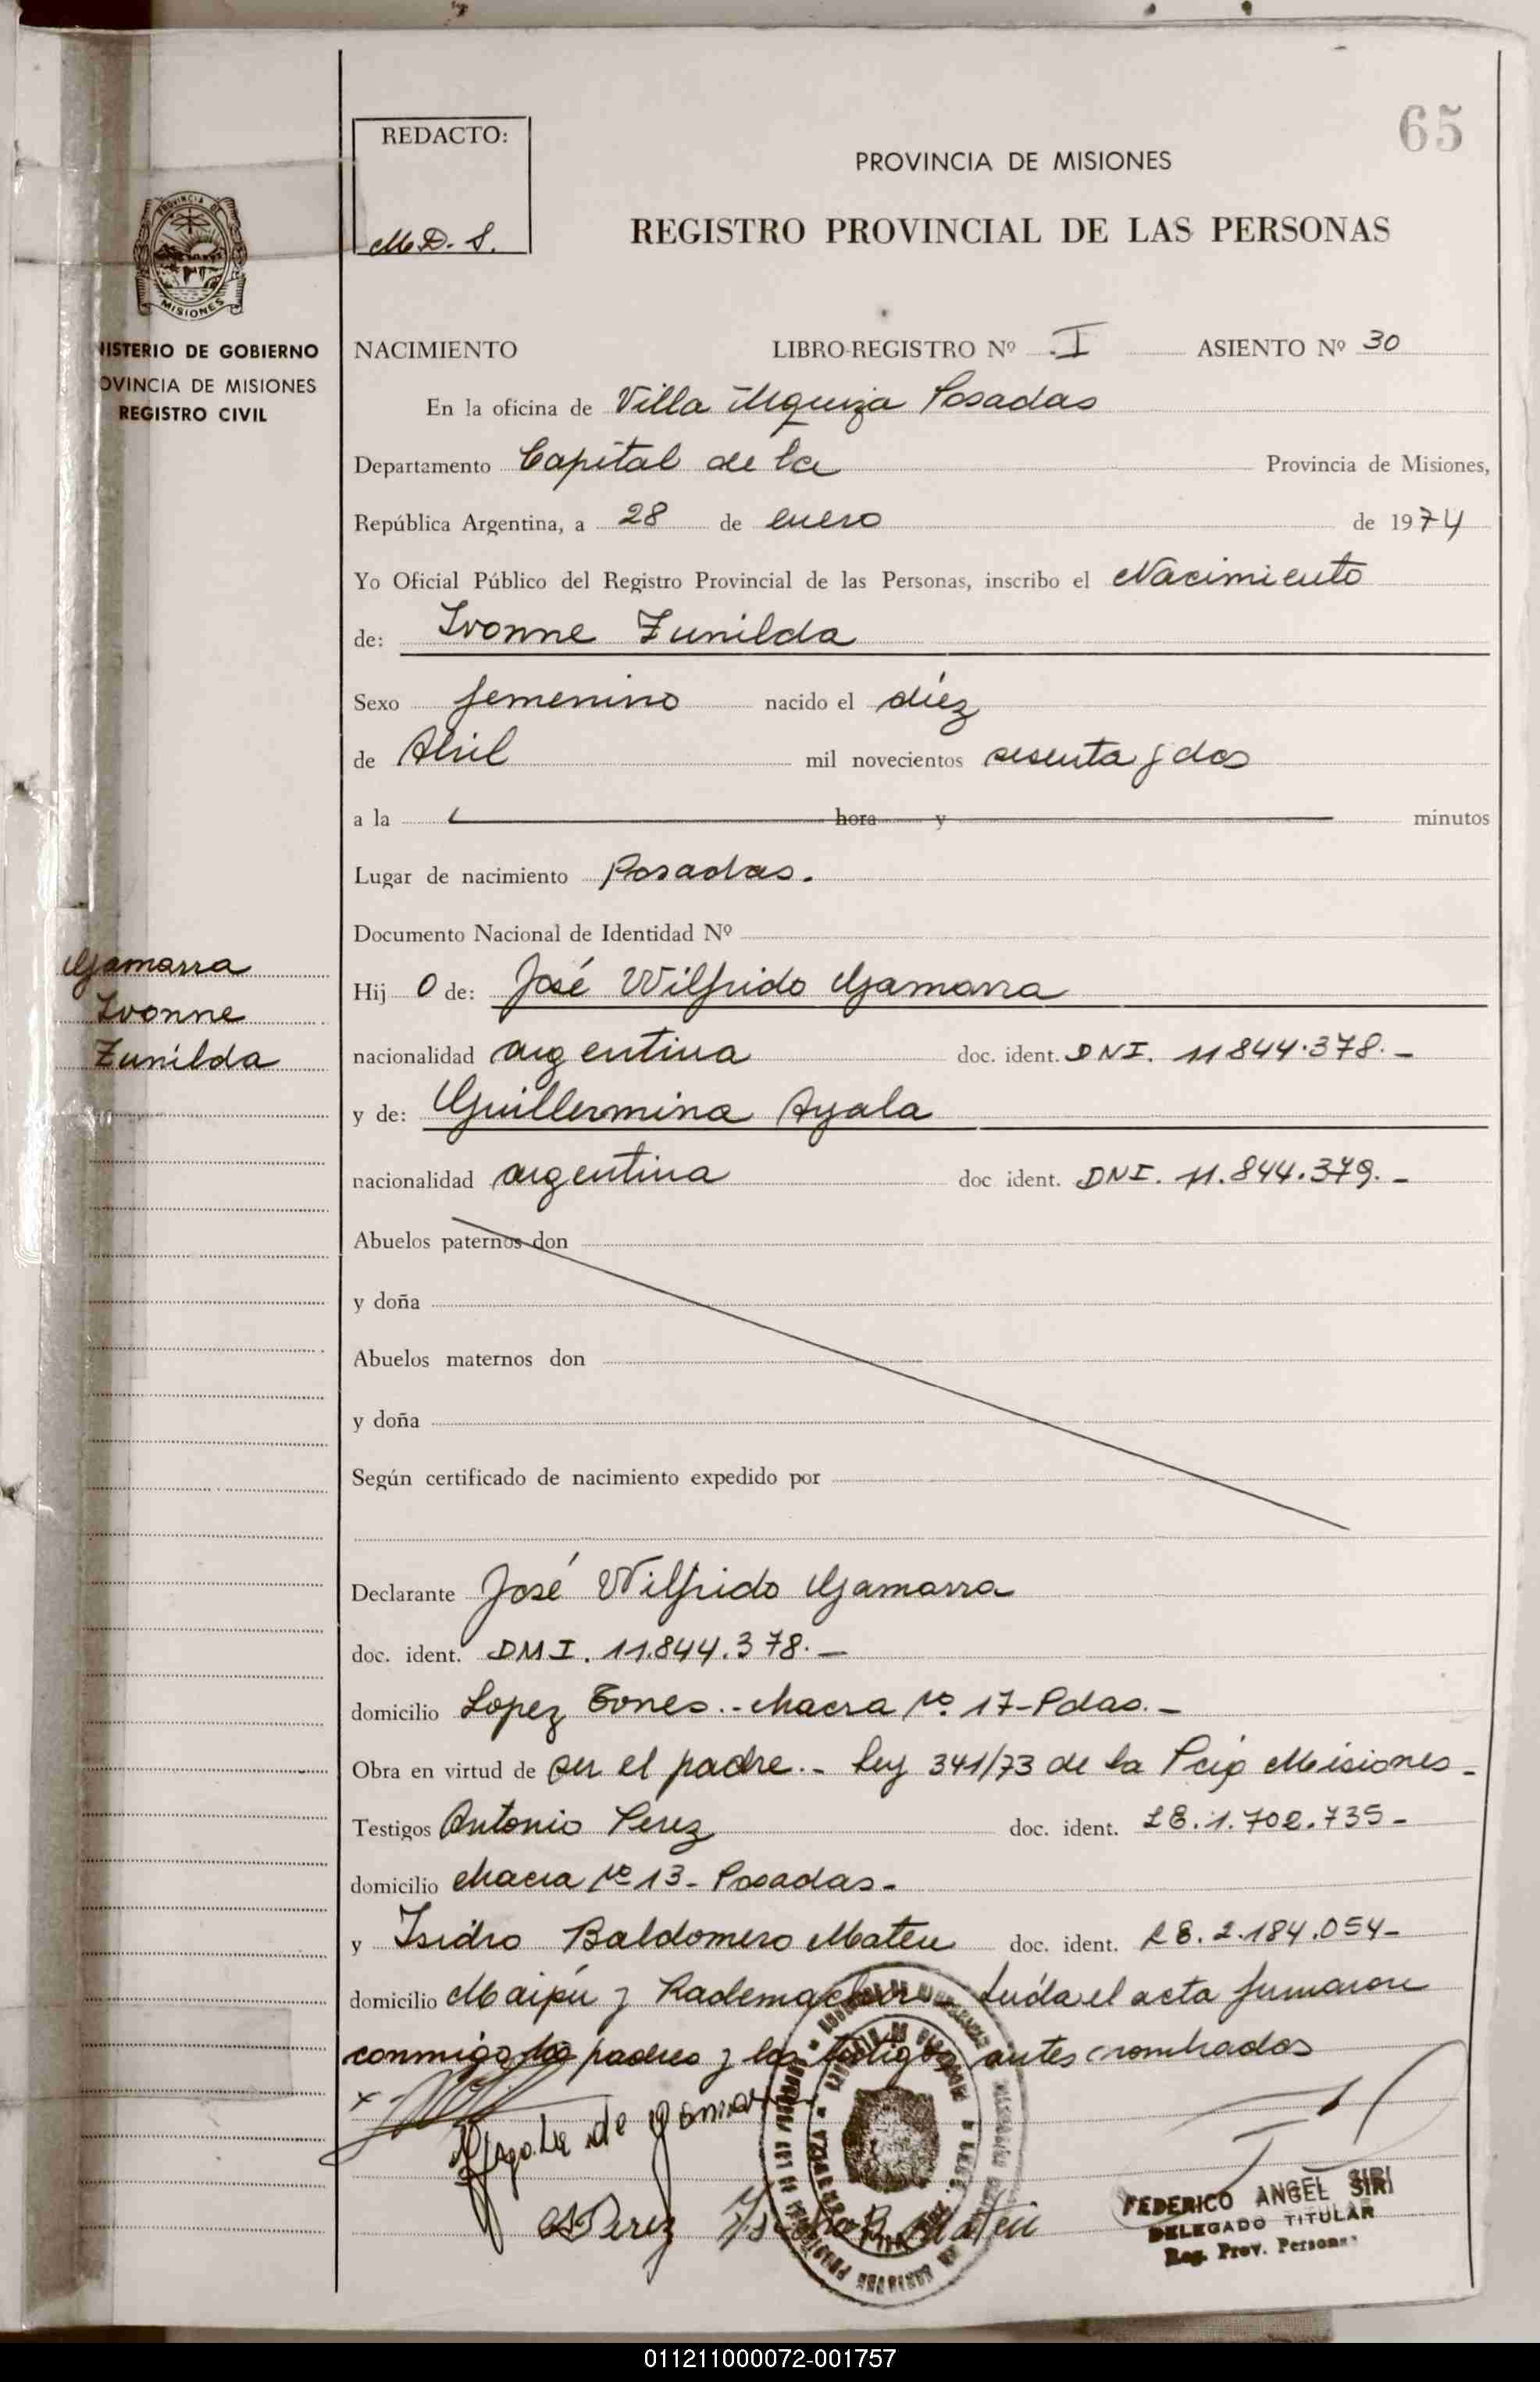 65
REDACTO:
M.D.S.
PROVINCIA DE MISIONES
REGISTRO PROVINCIAL DE LAS PERSONAS
PROVINCIA DE
MISIONES
NISTERIO DE GOBIERNO
OVINCIA DE MISIONES
REGISTRO CIVIL
NACIMIENTO LIBRO-REGISTRO Nº I ASIENTO Nº 30
En la oficina de Villa Urquiza Posadas
Departamento Capital de la Provincia de Misiones,
República Argentina, a 28 de enero de 1974
Yo Oficial Público del Registro Provincial de las Personas, inscribo el Nacimiento
de: Ivonne Zunilda
Sexo femenino nacido el diez
de Abril mil novecientos sesenta y dos
a la hora y minutos
Lugar de nacimiento Posadas.
Documento Nacional de Identidad Nº
Gamarra
Ivonne
Zunilda
Hij O de: José Wilfrido Gamarra
nacionalidad argentina doc. ident. DNI. 11844.378.-
y de: Guillermina Ayala
nacionalidad argentina doc ident. DNI. 11.844.379.-
Abuelos paternos don
y doña
Abuelos maternos don
y doña
Según certificado de nacimiento expedido por
Declarante José Wilfrido Gamarra
doc. ident. DNI. 11.844.378.-
domicilio Lopez Torres.- chacra Nº 17-Pdas.-
Obra en virtud de ser el padre.- Ley 341/73 de la Pcia Misiones-
Testigos Antonio Perez doc. ident. LE.1.702.735-
domicilio chacra Nº 13- Posadas-
y Isidro Baldomero Mateu doc. ident. LE.2.184.054-
domicilio Maipú y Rademacher Leída el acta firmaron
conmigo los padres y los testigos antes nombrados
de Gamarra
Perez
Mateu
FEDERICO ANGEL SIRI
DELEGADO TITULAR
Reg. Prov. Personas
011211000072-001757